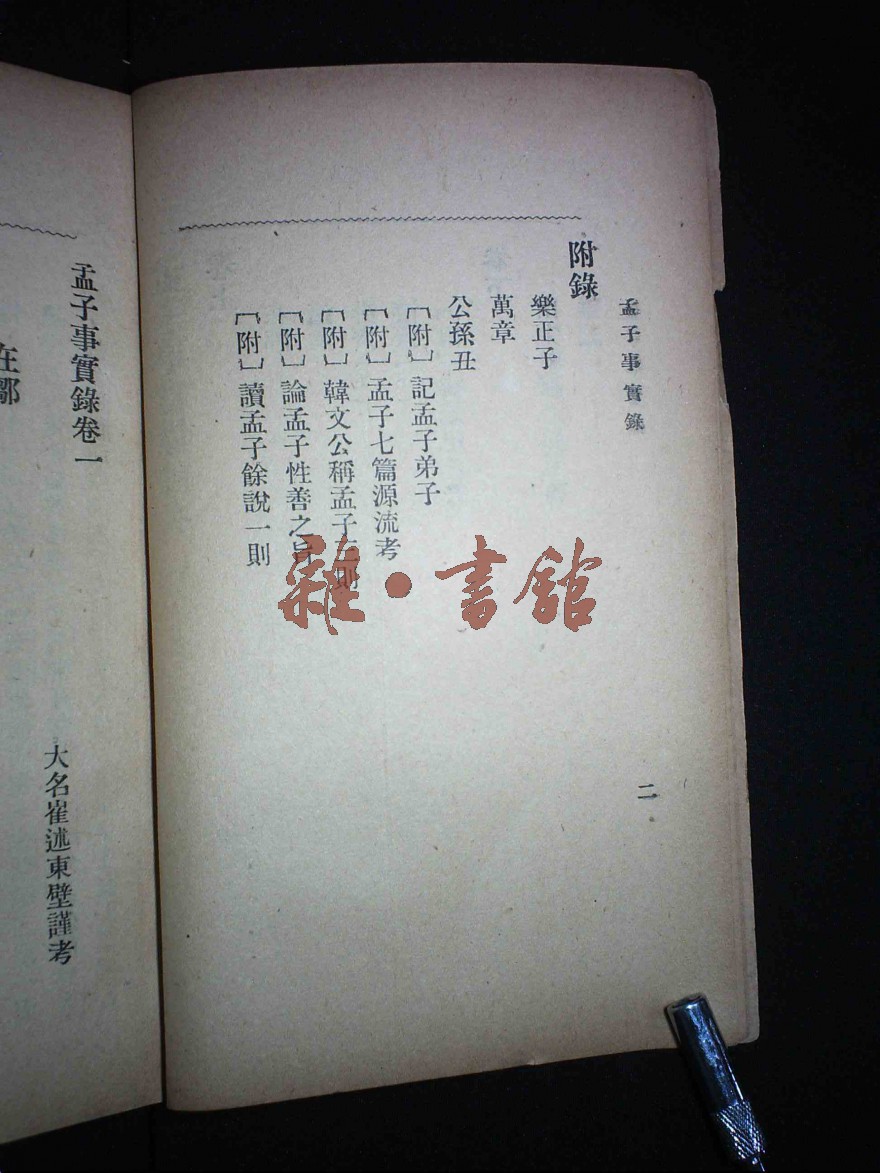 孟子事實錄
二
附錄
樂正子
萬章
公孫丑
［附］記孟子弟子
［附］孟子七篇源流考
［附］韓文公稱孟子三則
［附］論孟子性善之旨
［附］讀孟子餘說一則
孟子事實錄卷一
大名崔述東壁謹考
在鄒
雜·書館